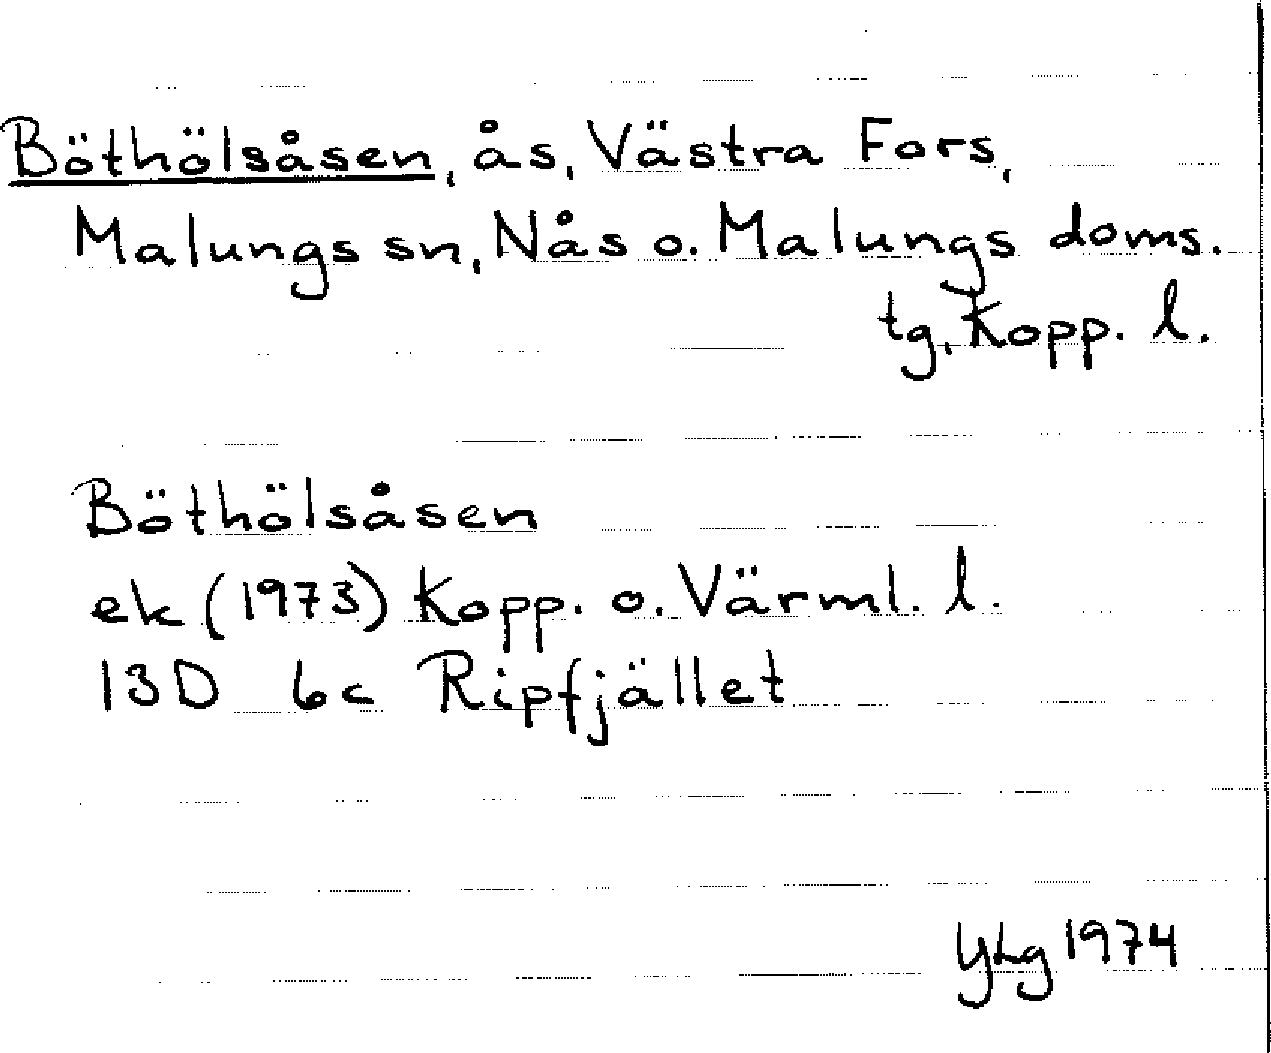 Böthölsåsen, ås, Västra Fors,
Malungs sn, Nås o. Malungs doms.
tg, Kopp. l.
Böthölsåsen
ek (1973) Kopp. o. Värml. l.
13D 6c Ripfjället
YLg 1974